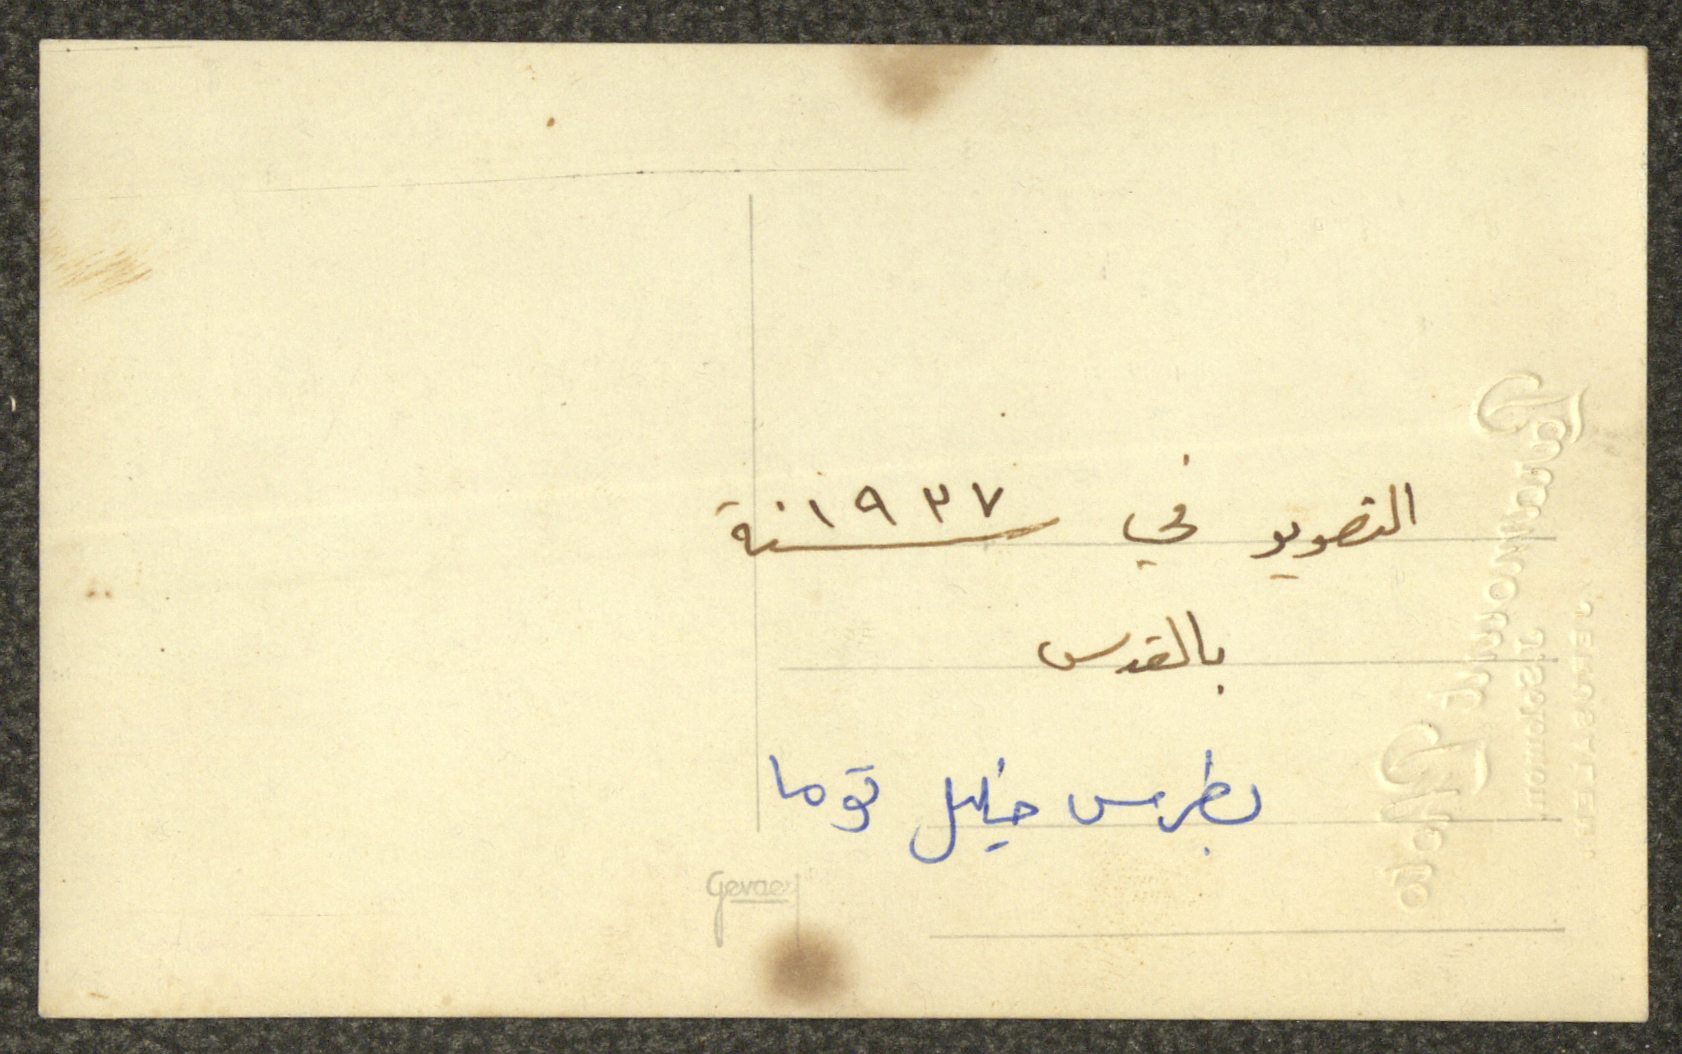 التصوير في سنة ١٩٣٧
بالقدس
بطرس خليل توما
Gevaert
Photo
J. Salomon
JERUSALEM